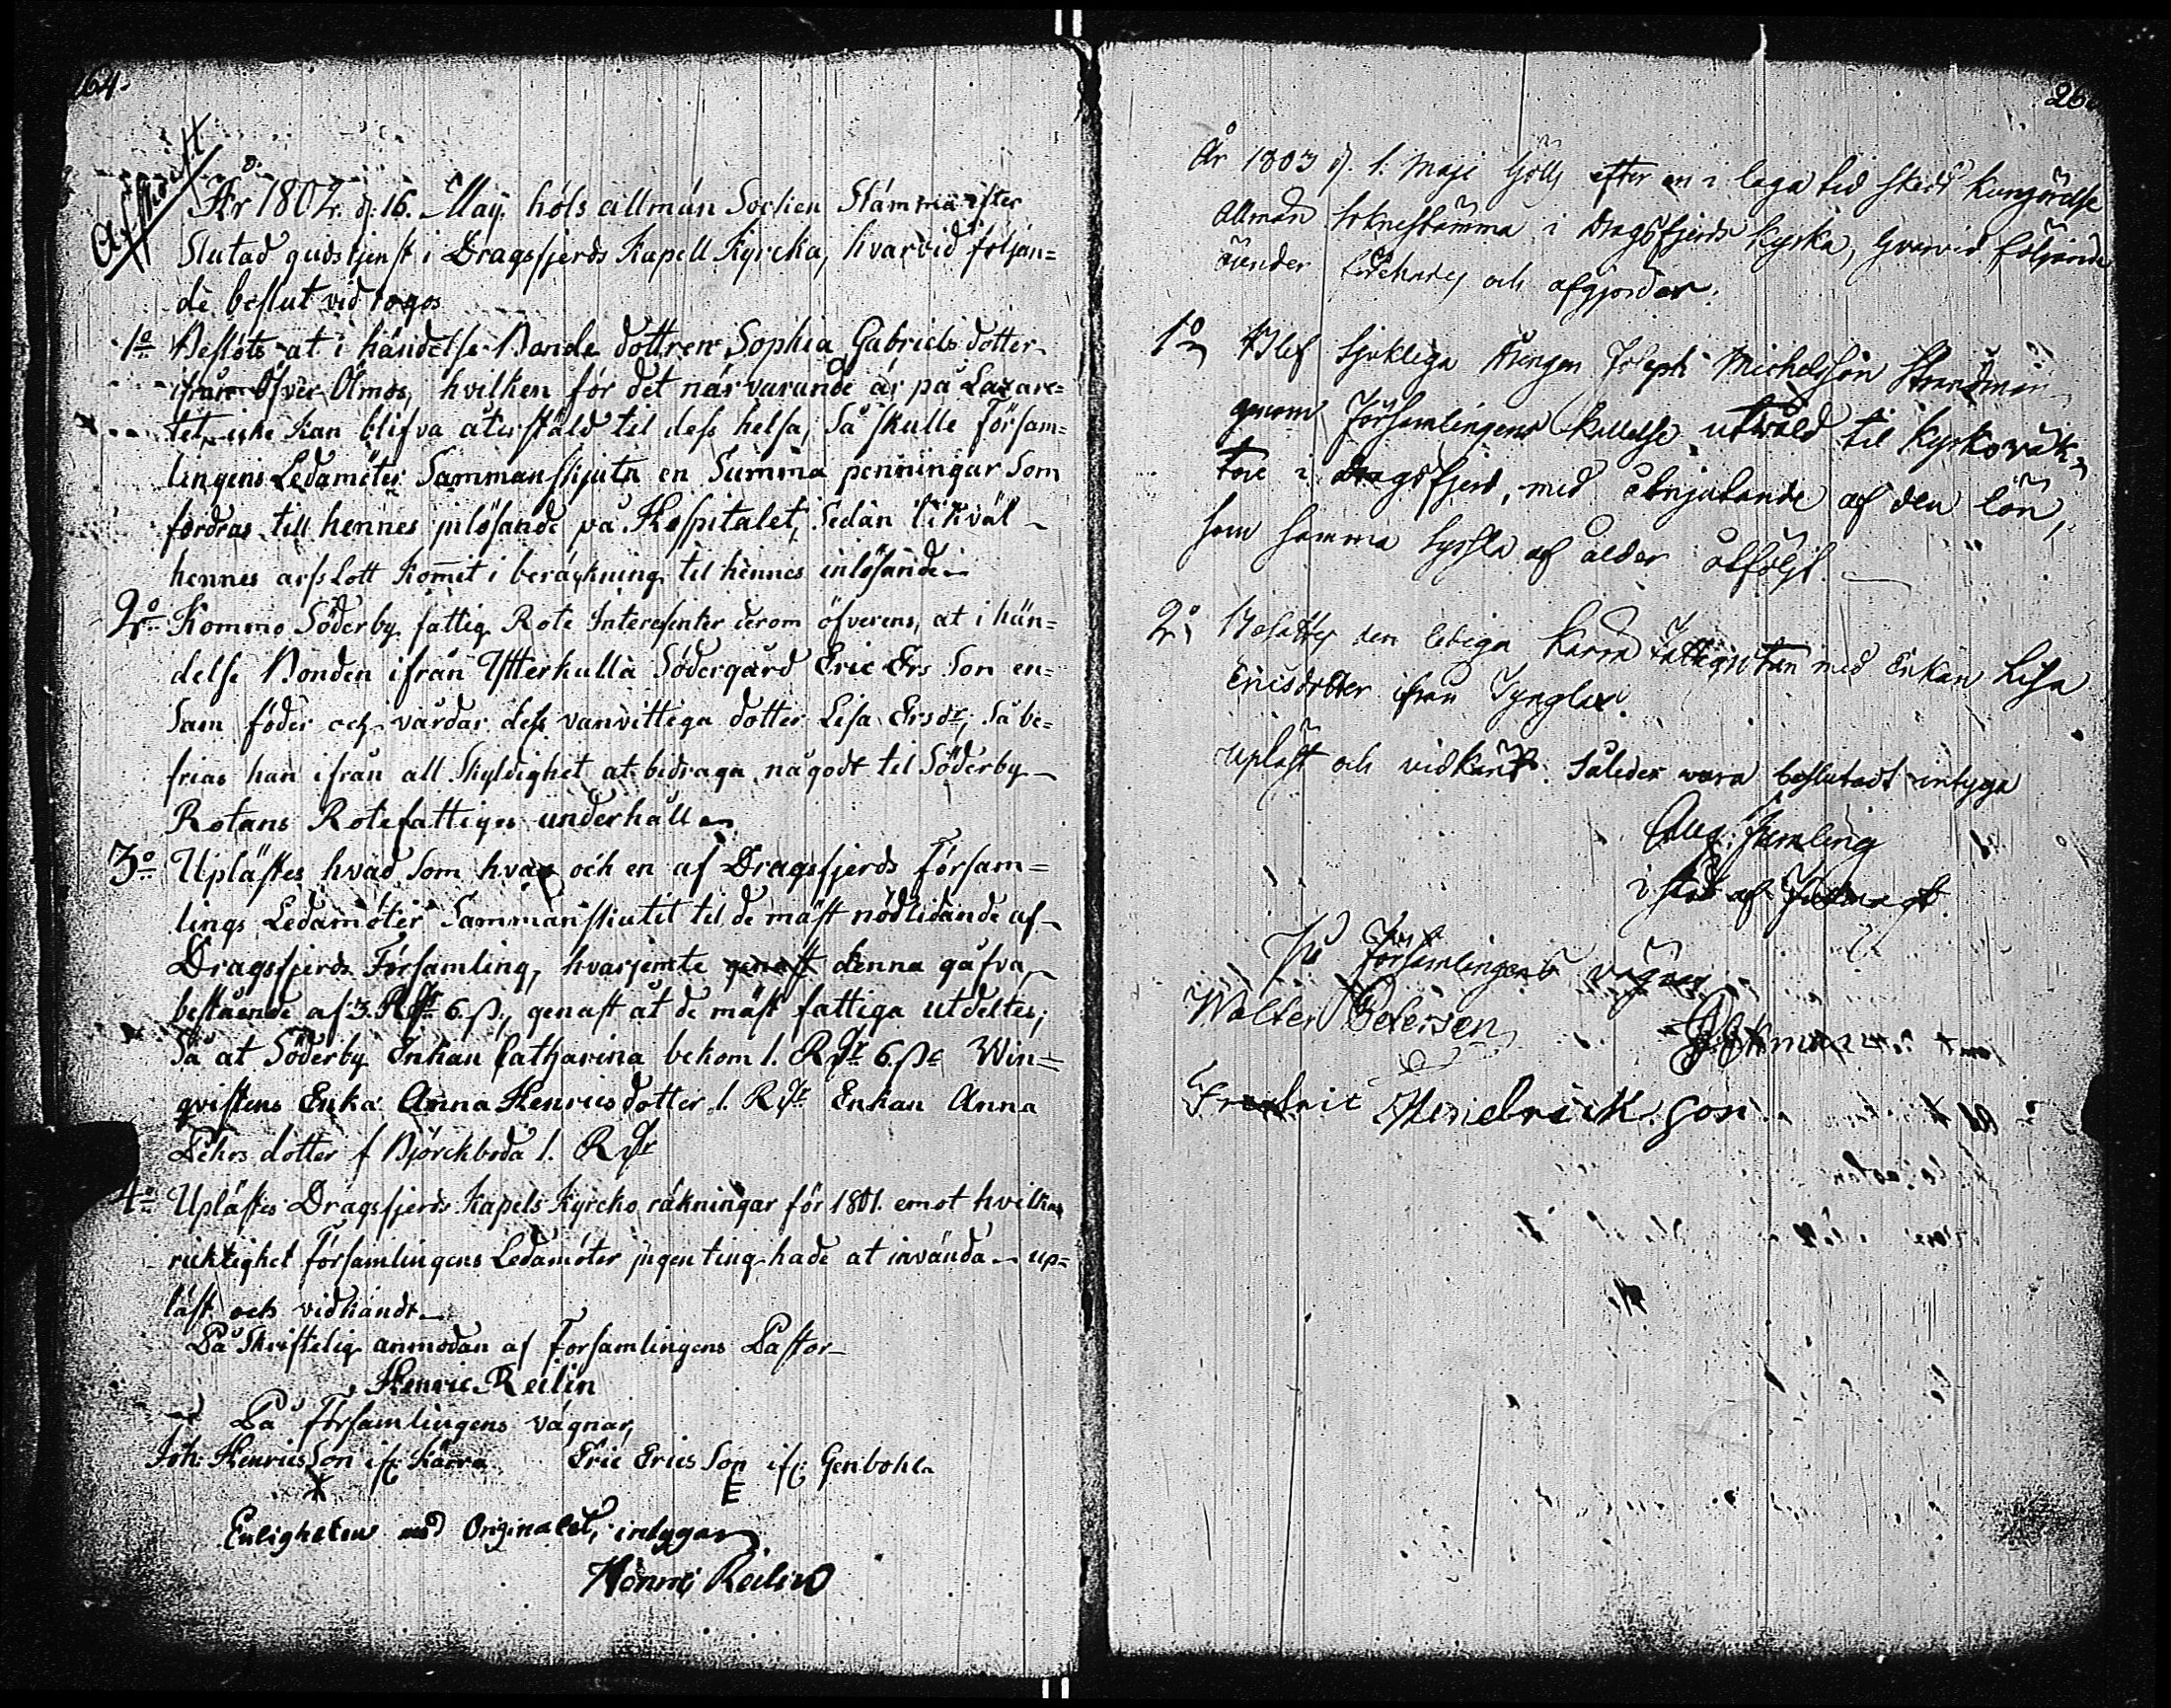 264.
Afskrift
År 1802. d. 16. May. höls allmän Sockne Stämma efter
Slutad gudstjenst i Dragsfjerds Kapell Kyrcka, hvarvid följan=
de beslut vid togos
1o Beslöts at i händelse Bonde dottren Sophia Gabriels dotter
ifrån Öfver Ölmos, hvilken för det närvarande är på Lazare=
tet, icke kan blifva återstäld til dess helsa, Så skulle Försam=
lingens Ledamöter Sammanskjuta en Summa penningar Som
fordras till hennes inlösande på Hospitalet, Sedan likväl
hennes arfs Lott Komit i beräkning til hennes inlösande
2o Kommo Söderby fattig Rote Interesenter derom öfverens, at i hän=
delse Bonden ifrån Ytterkulla Södergård Eric Ers Son en=
Sam föder och vårdar dess vanvittiga dotter Lisa Ersdr; Så be=
frias han ifrån all Skyldighet at bidraga någodt til Söderby
Rotans Rotefattiges underhåll
3o Uplästes hvad Som hvar och en af Dragsfjerds Försam=
lings Ledamöter Sammanskiutit til de mäst nödlidande af
Dragsfjerds Församling, hvarjemte genast denna gåfva
bestående af 3. Rdr 6 ß., genast åt de mäst fattiga utdeltes;
Så at Söderby Enkan Catharina bekom 1. Rdr 6. ß Win=
qvistens Enka Anna Henricsdotter 1. Rdr Enkan Anna
Pehrs dotter f Björckboda 1. Rdr
4o Uplästes Dragsfjerds Kapels Kyrcko räkningar för 1801. emot hvilkas
ricktighet församlingens Ledamöter ingenting hade at invända up=
läst och vidkändt
På Skriftelig anmodan af Församlingens Pastor
Henric Reilin
På Församlingens vägnar,
Joh: Henrics Son ifr: Kärra Eric Erics Son ifr: Genbohle
E
Enligheten med Originalet, intygar
Henric Reilin
År 1803 d. 1. Maji hölls efter en i laga tid skedd kungörelse
allmän Soknestämma i Dragsfjerds Kyrka, hvarvid följande
ärender och afgjordes.
1o Blef sjukliga Drängen Joseph Michelsson Strandman
genom Församlingens kallelse utvald til Kyrkoväk=
tare i Dragsfjerd, med åtnjutande af den lön,
som samma syssla af ålder åtföljt.
2o Besattes den lediga Kärra med Enkan Lisa
Ericsdotter ifrån
Upläst och vidkändt. Således vara beslutadt intyga
På Församlingens vägnar
Walter Petersen
Fredric Hendrickson